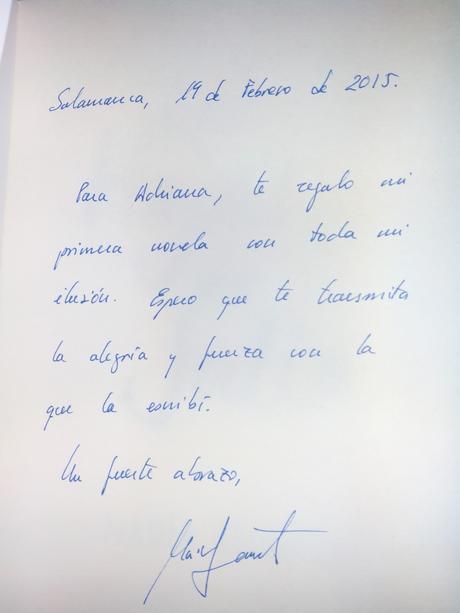 Salamanca, 19 de Febrero de 2015.
Para Adriana, te regalo mi
primera novela con toda mi
ilusión. Espero que te transmita
la alegría y fuerza con la
que la escribí.
Un fuerte abrazo,